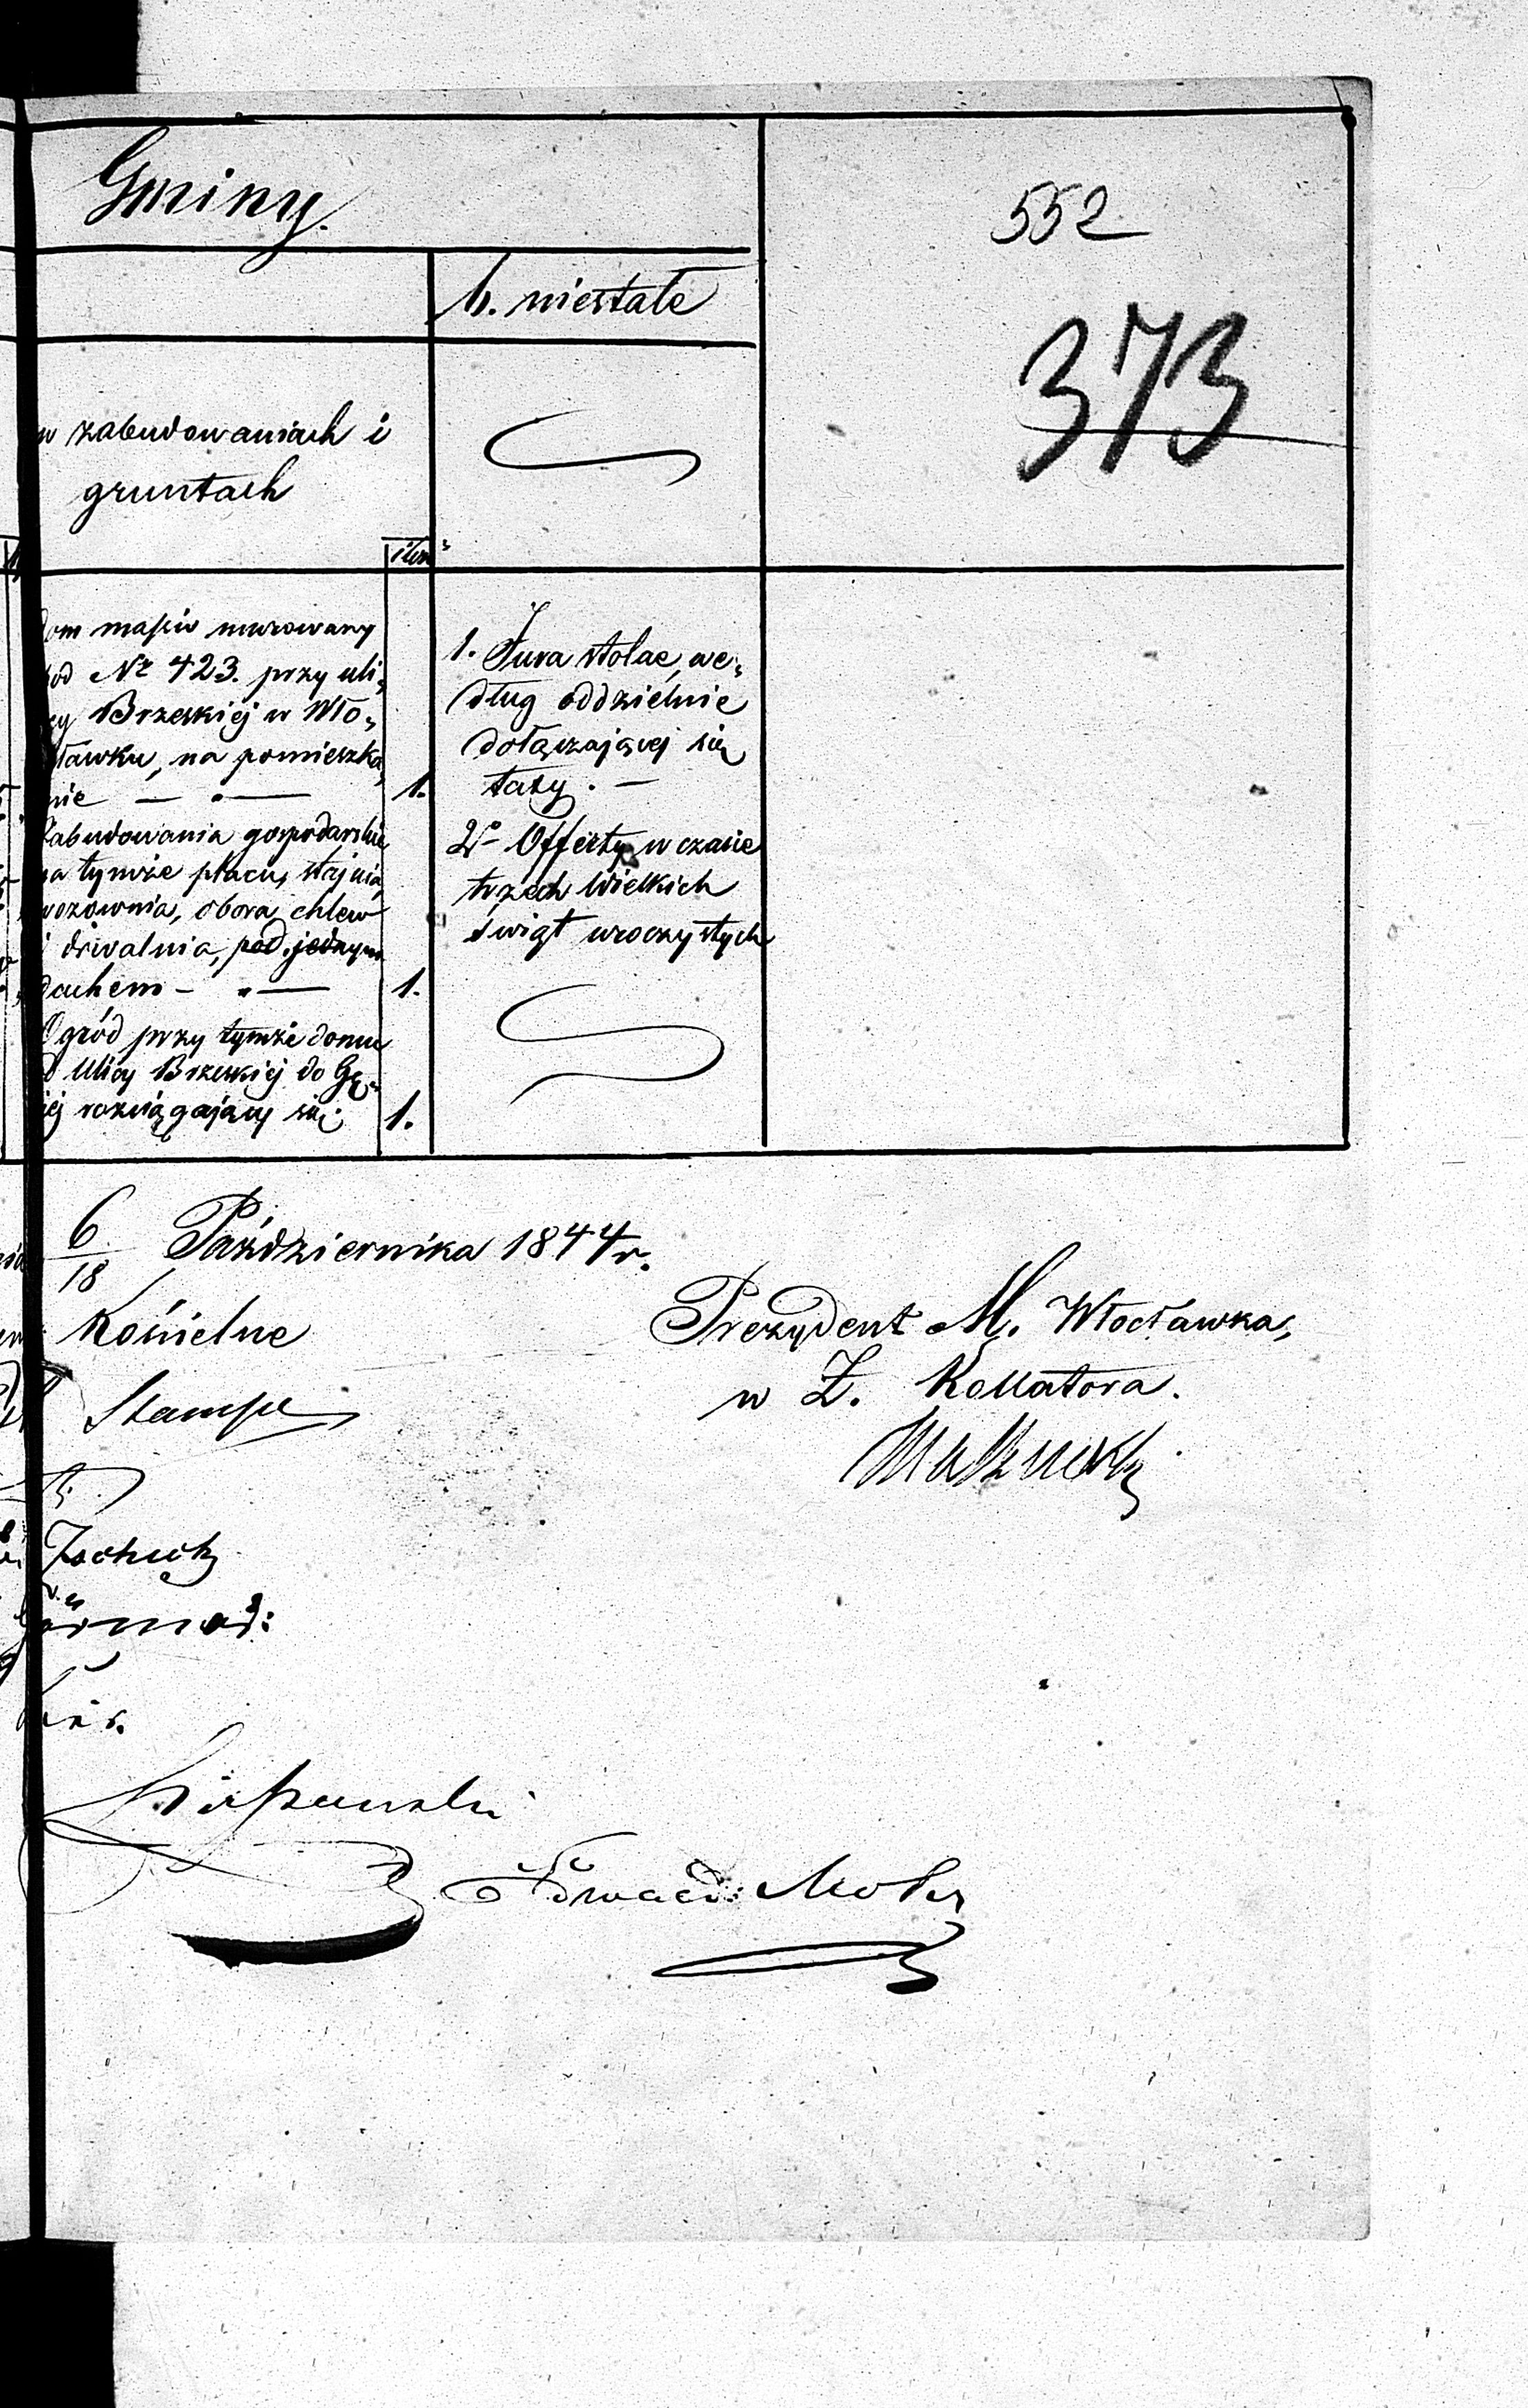 Gminy.
552
b. niestałe
373
w zabudowaniach i
gruntach
dom massiv murowany
pod Nr 423. przy uli„
cy Brzeskiej w Wło„
cławku, na pomieszka„
nie — . — 1.
Zabudowania gospodarskie
na tymże placu, stajnia,
wozownia, obora, chlew
i drwalnia, pod jednym
dachem — . — 1.
Ogród przy tymże domu
od Ulicy Brzeskiej do Gę„
siej rozciągający się. 1.
1. Jura stolae, we„
dług oddzielnie
dołączającej się
taxy. —
2o Offerty w czasie
trzech Wielkich
świąt uroczystych
6/18 Października 1844 r.
Kościelne
Stampe
Prezydent M. Włocławka,
w Z. Kollatora.
Edward Mohr